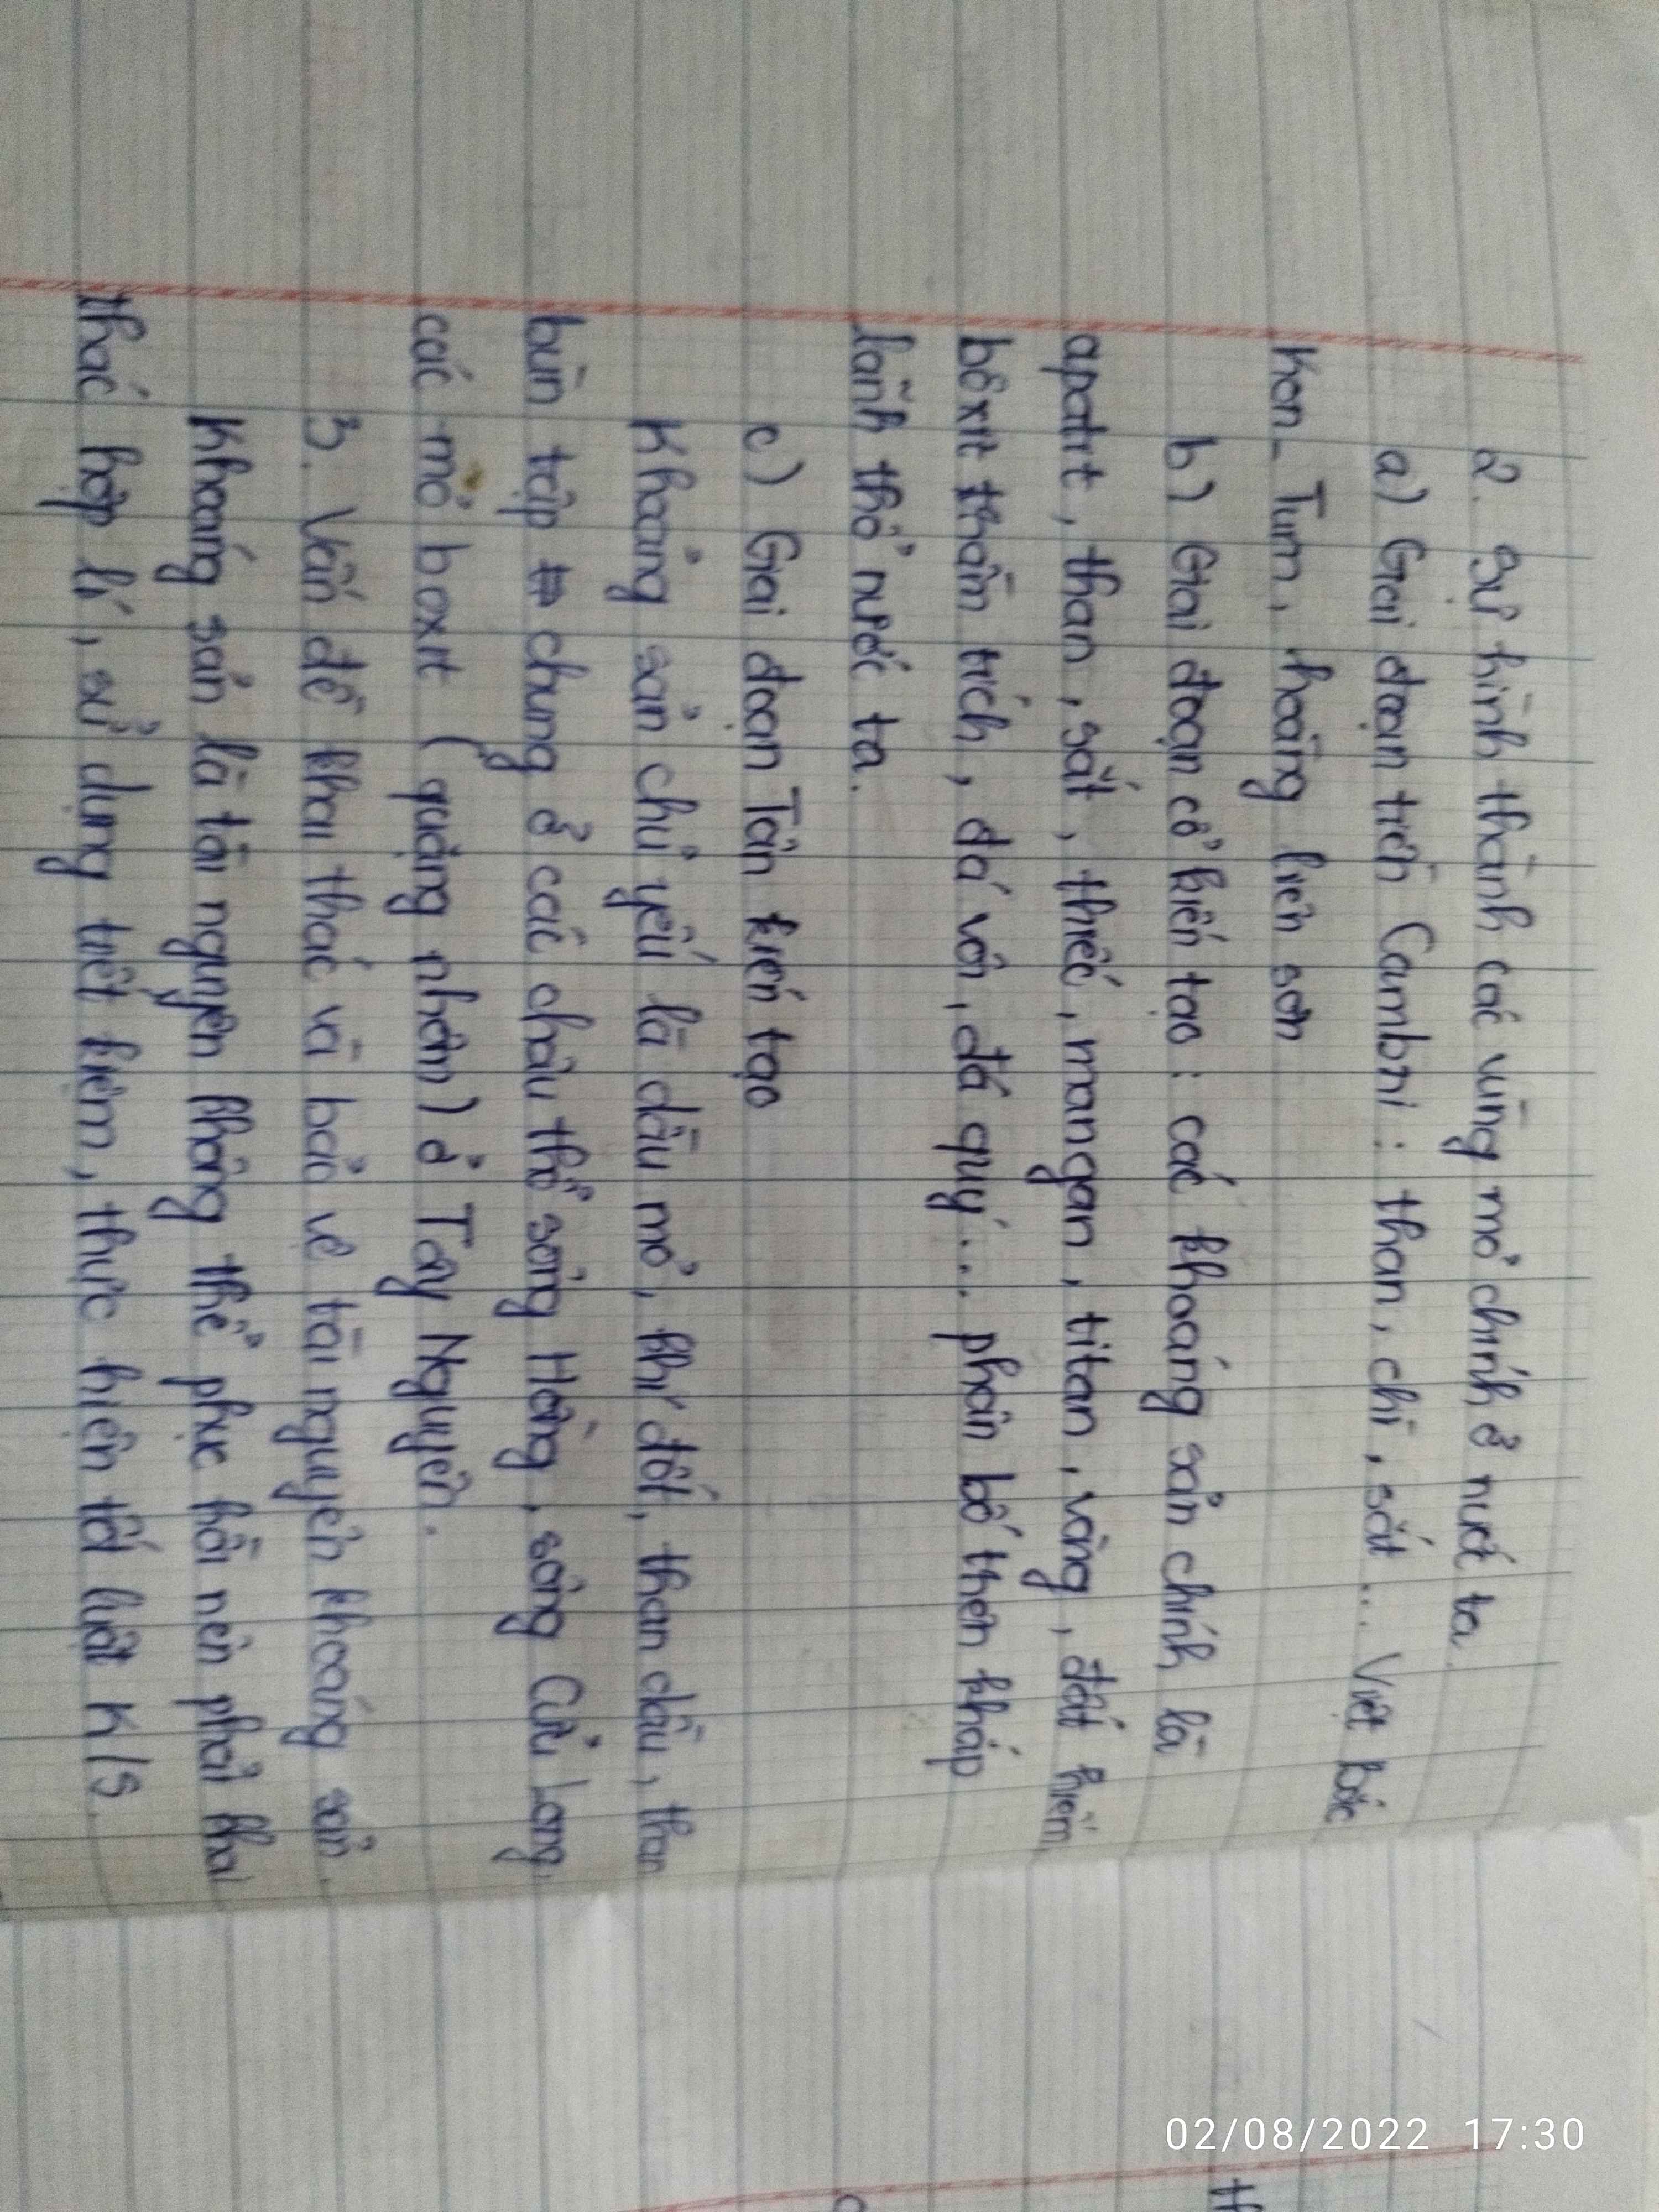 2. Sự hình thành các vùng mỏ chính ở nước ta.
a) Giai đoạn tiền Cambri : than, chì, sắt ... Việt Bắc
Kon_ Tum, hoàng liên sơn
b) Giai đoạn cổ kiến tạo : các khoáng sản chính là
apatit, than, sắt, thiếc, mangan, titan, vàng, đất hiếm
bôxit trầm tích, đá vôi, đá quý... phân bố trên khắp
lãnh thổ nước ta.
c) Giai đoạn Tân kiến tạo
Khoảng sản chủ yếu là dầu mỏ, khí đốt, than dầu, than
bùn tập chung ở các châu thổ sông Hồng, sông Cửu Long,
các mỏ boxit (quặng nhôm) ở Tây Nguyên.
3. Vấn đề khai thác và bảo vệ tài nguyên khoáng sản.
Khoáng sản là tài nguyên không thể phục hồi nên phải khai
thác hợp lí, sử dụng tiết kiệm, thực hiện tốt luật K/S.
02/08/2022 17:30